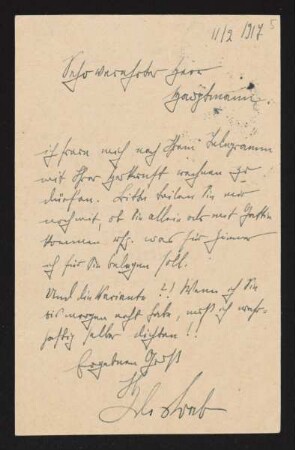 11/2 1917
Sehr verehrter Herr
Hauptmann,
ich freue mich nach Ihrem Telegramm
mit Ihrer Herkunft rechnen zu
dürfen. Bitte teilen Sie mir
noch mit, ob Sie allein oder mit Gattin
kommen u. was für Zimmer
ich für Sie belegen soll.
Und die Variante?! Wenn ich Sie
bis morgen nicht habe, muß ich wahr-
haftig selber dichten!!
Ergebenen Gruß
Ihr